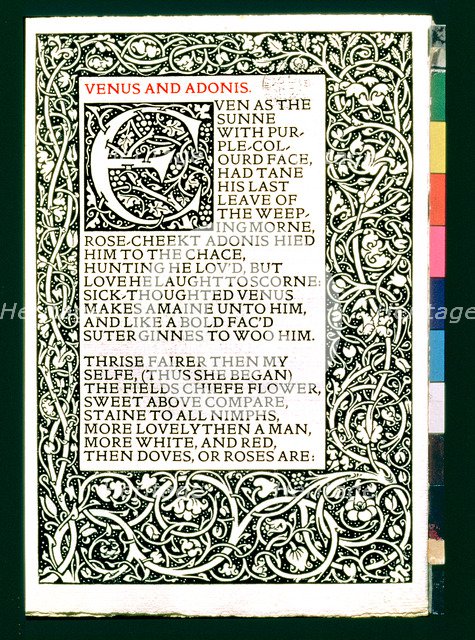 VENUS AND ADONIS.
EVEN AS THE
SUNNE
WITH PUR-
PLE-COL-
OURD FACE,
HAD TANE
HIS LAST
LEAVE OF
THE WEEP-
ING MORNE,
ROSE-CHEEKT ADONIS HIED
HIM TO THE CHACE,
HUNTING HE LOV'D, BUT
LOVE HE LAUGHT TO SCORNE:
SICK-THOUGHTED VENUS
MAKES AMAINE UNTO HIM,
AND LIKE A BOLD FAC'D
SUTER GINNES TO WOO HIM.
THRISE FAIRER THEN MY
SELFE, (THUS SHE BEGAN)
THE FIELDS CHIEFE FLOWER,
SWEET ABOVE COMPARE,
STAINE TO ALL NIMPHS,
MORE LOVELY THEN A MAN,
MORE WHITE, AND RED,
THEN DOVES, OR ROSES ARE: